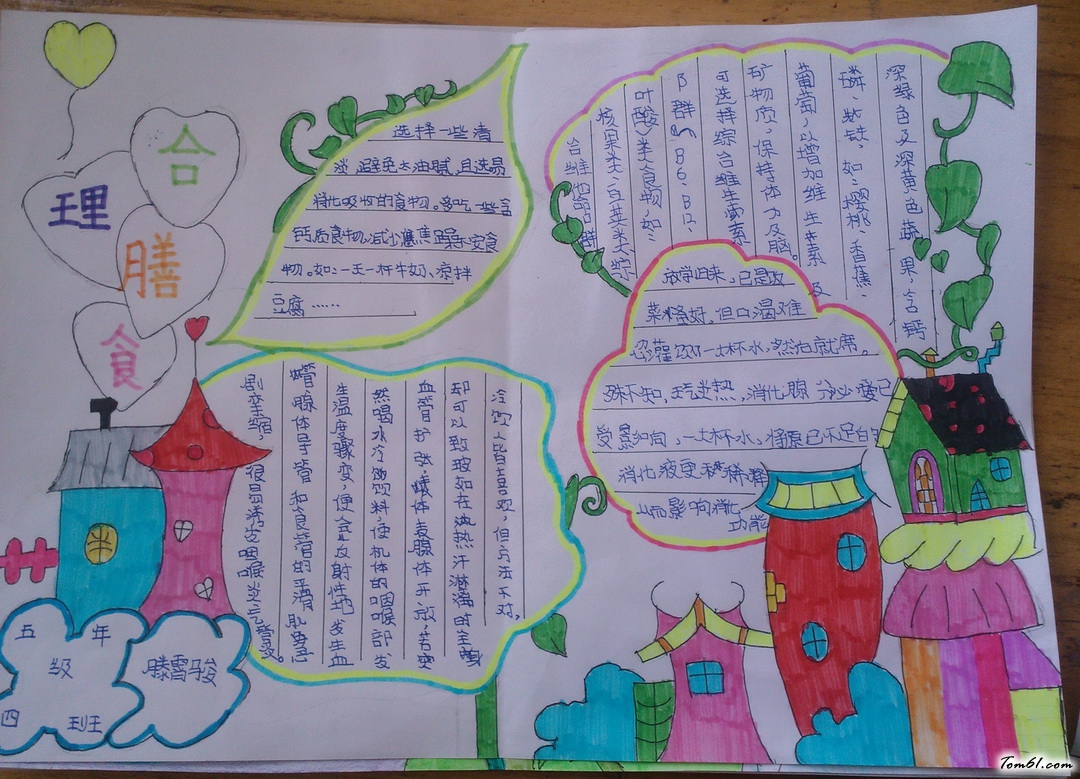 合
理
膳
食
选择一些清
淡,避免太油腻,且选易
消化吸收的食物。多吃一些含
钙质食物,减少焦躁不安食
物。如:一天一杯牛奶、凉拌
豆腐……
深绿色及深黄色蔬果,含钙
磷、钬铁,如:樱桃、香蕉、
葡萄,以增加维生素及
矿物质,保持体力及脑。
可选择综合维生素
B群 B6、B12、
叶酸)类食物,如:
核果类、豆荚类、综
合维他命B群
放学归来,已是饭
菜将好,但口渴难
忍,灌饮一大杯水,然后就席。
殊不知,天气炎热,消化腺分泌
受影响,一大杯水,将原已不足的
消化液更稀释
从而影响消化
功能
冷饮人皆喜欢,但方法不对,
却可以致 如在炎热汗淋淋的
血管扩张,体表腺体开放,若突
然喝冰冷的饮料使机体的咽喉部发
生温度骤变,便会反射性地发生血
管腺体导管和食管的平滑肌
剧烈 ,很易诱发咽喉炎气管炎。
五 年
级
四 班
滕霄骏
Tom61.com